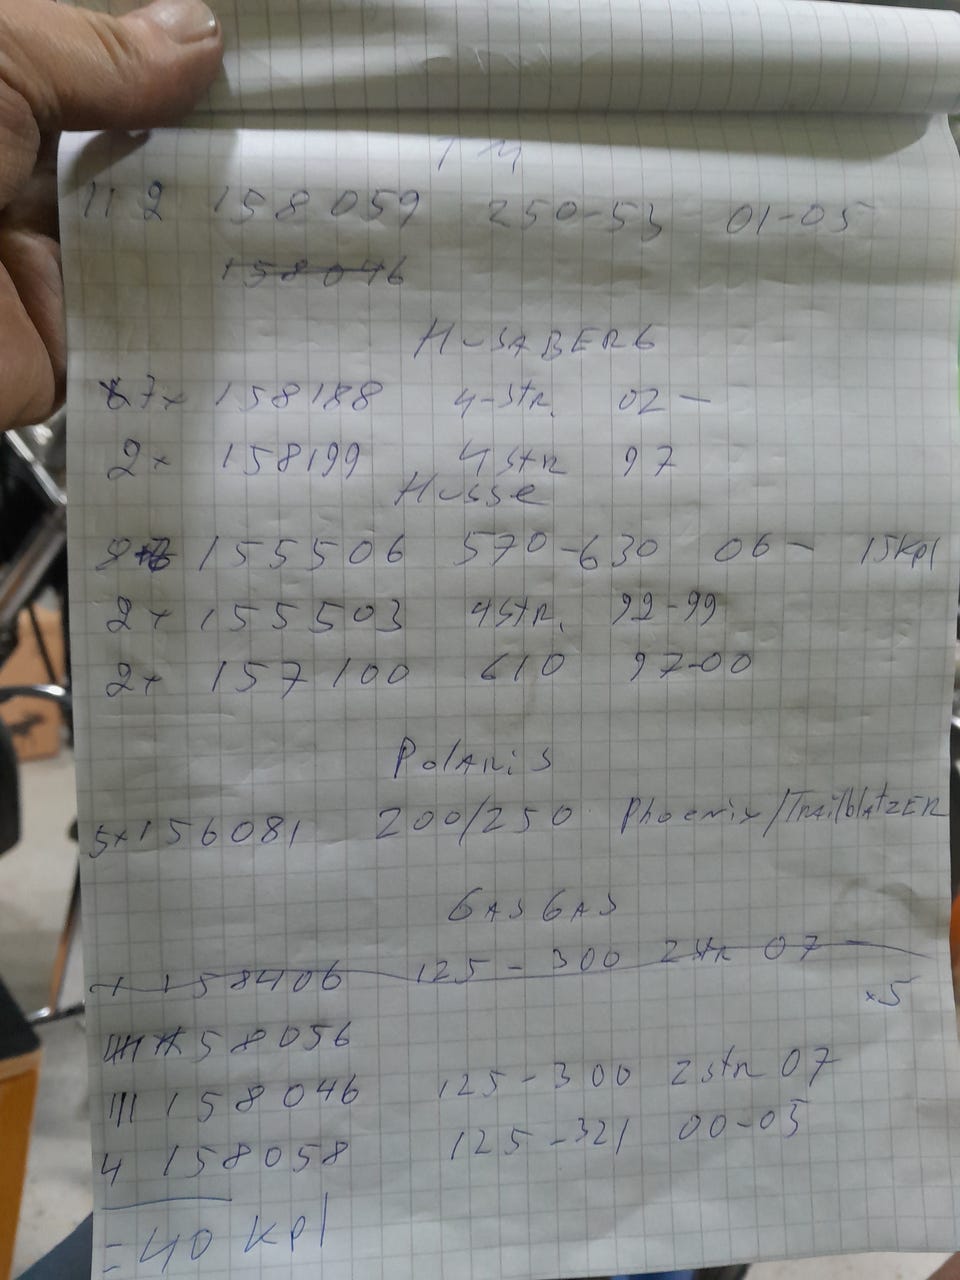 TM
11 2 158059 250-53 01-05
158046
HUSABERG
7x 158188 4-str. 02-
2x 158199 4str 97
Husse
155506 570-630 06- 15kpl
2x 155503 4str. 92-99
2x 157100 610 97-00
PolARiS
5x 156081 200/250 Phoenix/TRAilblAtZER
GASGAS
x 158406 125-300 2str 07-
x5
158056
III 158046 125-300 2str 07
4 158058 125-321 00-05
=40 kpl